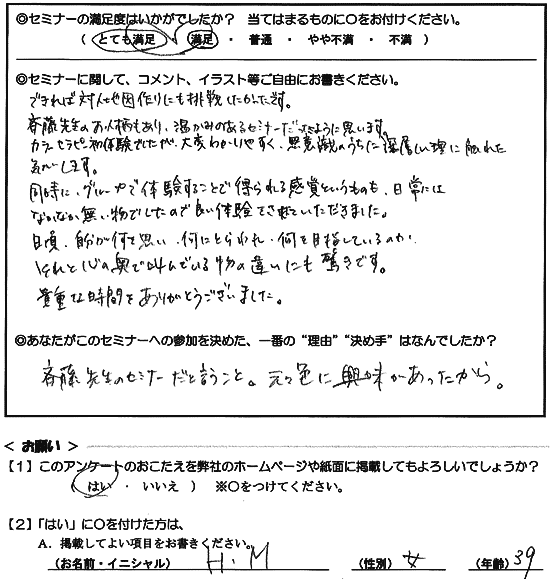 ◎セミナーの満足度はいかがでしたか？ 当てはまるものに〇をお付けください。
（ とても満足 ・ 満足 ・ 普通 ・ やや不満 ・ 不満 ）
◎セミナーに関して、コメント、イラスト等ご自由にお書きください。
できれば対人や図作りにも挑戦したかったです。
斉藤先生のお人柄もあり、温かみのあるセミナーだったように思います。
カラーセラピー初体験でしたが、大変わかりやすく、無意識のうちに深層心理に触れた
気がします。
同時に、グループで体験することで得られる感覚というものも、日常には
なかなか無い物でしたので良い体験をさせていただきました。
日頃、自分が何を思い、何にとらわれ、何を目指しているのか、
それと心の奥で叫んでいる物の違いにも驚きです。
貴重な時間をありがとうございました。
◎あなたがこのセミナーへの参加を決めた、一番の“理由”“決め手”はなんでしたか？
斉藤先生のセミナーだと言うこと。元々色に興味があったから。
＜ お願い ＞
【１】このアンケートのおこたえを弊社のホームページや紙面に掲載してもよろしいでしょうか？
（ はい ・ いいえ ） ※〇をつけてください。
【２】「はい」に〇を付けた方は、
A．掲載してよい項目をお書きください。
（お名前・イニシャル） H・M （性別） 女 （年齢） 39